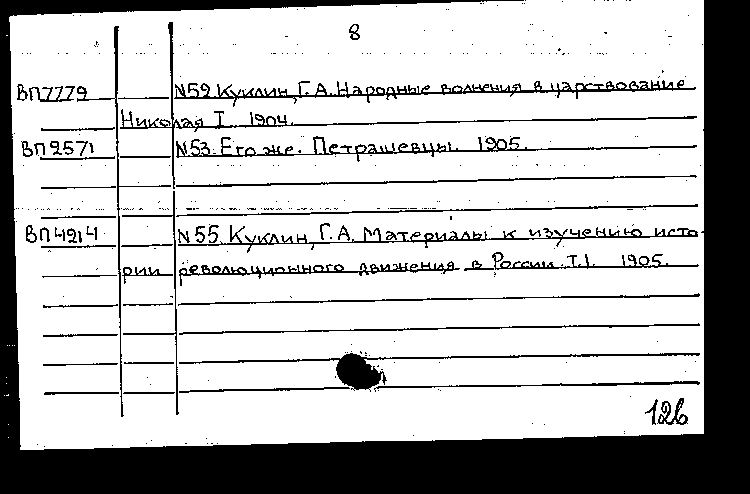 8
ВП7779 N52. Куклин, Г.А. Народные волнения в царствование
Николая I. 1904.
ВП2571 N53. Его же. Петрашевцы. 1905.
ВП4214 N55. Куклин, Г.А. Материалы к изучению исто-
рии революционного движения в России. Т.1. 1905.
126